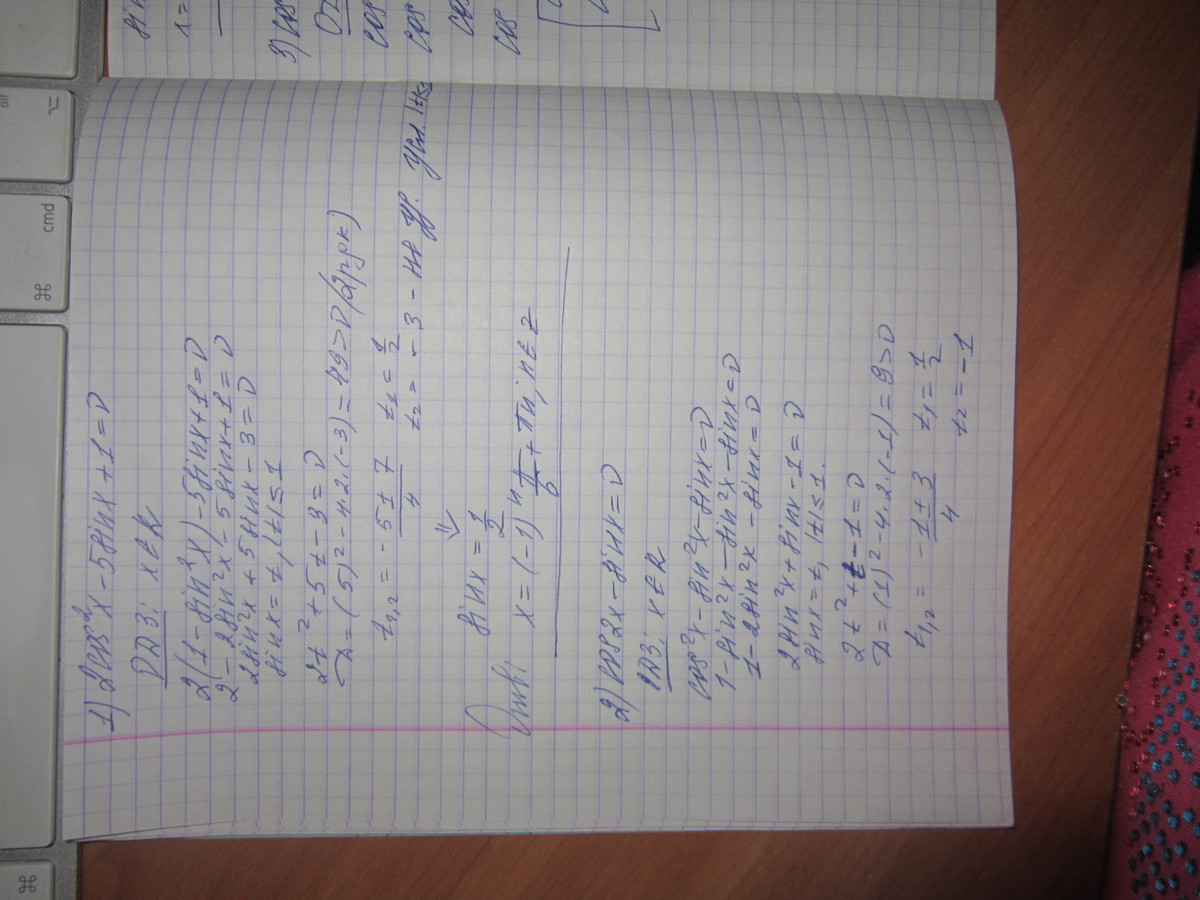 1) 2cos²x - 5sinx + 1 = 0
ОДЗ: x∈R
2(1 - sin²x) - 5sinx + 1 = 0
2 - 2sin²x - 5sinx + 1 = 0
2sin²x + 5sinx - 3 = 0
sinx = t, |t| ≤ 1
2t² + 5t - 3 = 0
D = (5)² - 4·2·(-3) = 49 > 0 (2 рдк)
t₁,₂ = (-5 ± 7)/4 t₁ = 1/2
t₂ = -3 - не уд. усл.
⇓
sinx = 1/2
Ответ x = (-1)ⁿ π/6 + πn, n∈Z
2) cos2x - sinx = 0
ОДЗ: x∈R
cos²x - sin²x - sinx = 0
1 - sin²x - sin²x - sinx = 0
1 - 2sin²x - sinx = 0
2sin²x + sinx - 1 = 0
sinx = t, |t| ≤ 1.
2t² + t - 1 = 0
D = (1)² - 4·2·(-1) = 9 > 0
t₁,₂ = (-1 ± 3)/4 t₁ = 1/2
t₂ = -1
3) cos
cos
cos
cos
cos
cmd
⌘
⌥
⌘